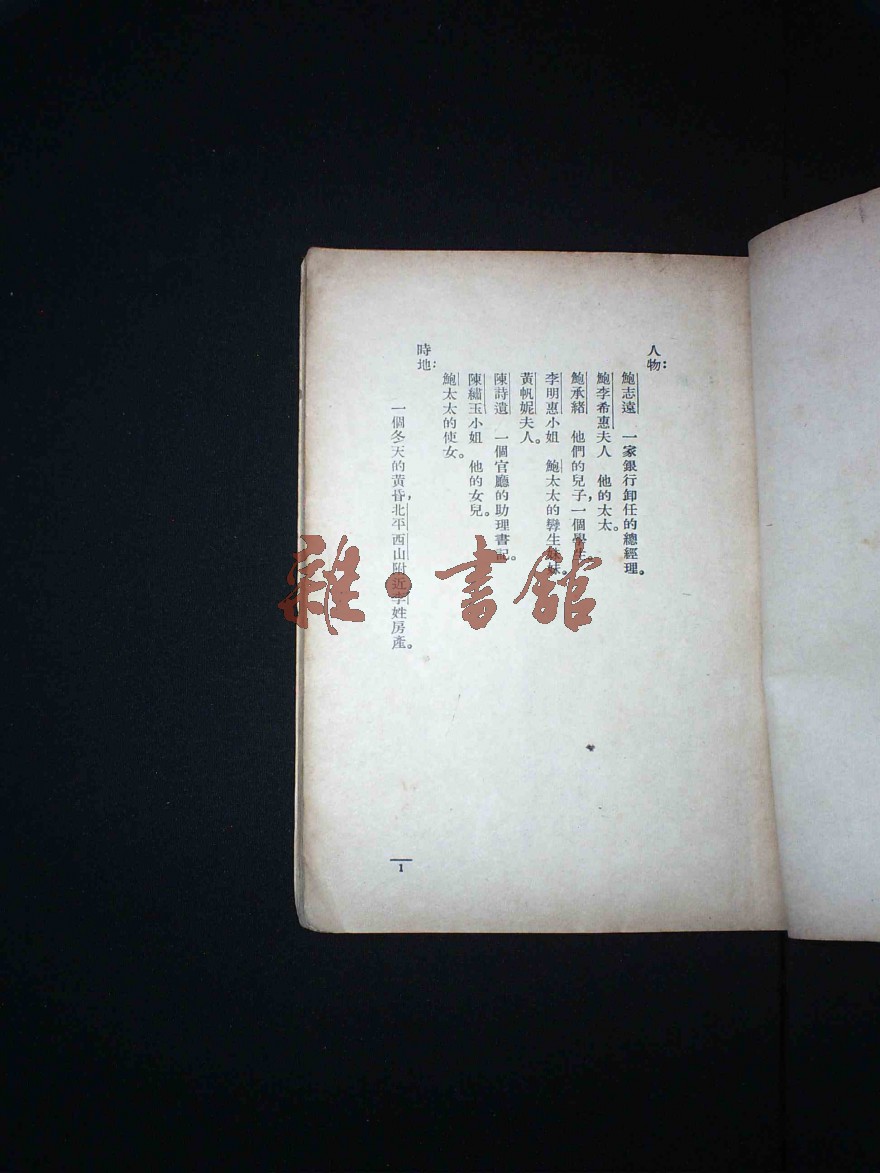 人物：
鮑志遠　一家銀行卸任的總經理。
鮑李希惠夫人　他的太太。
鮑承緒　他們的兒子，一個學生。
李明惠小姐　鮑太太的孿生妹妹。
黃帆妮夫人。
陳詩遺　一個官廳的助理書記。
陳繡玉小姐　他的女兒。
鮑太太的使女。
時地：
一個冬天的黃昏，北平西山附近李姓房產。
1
雜·書館